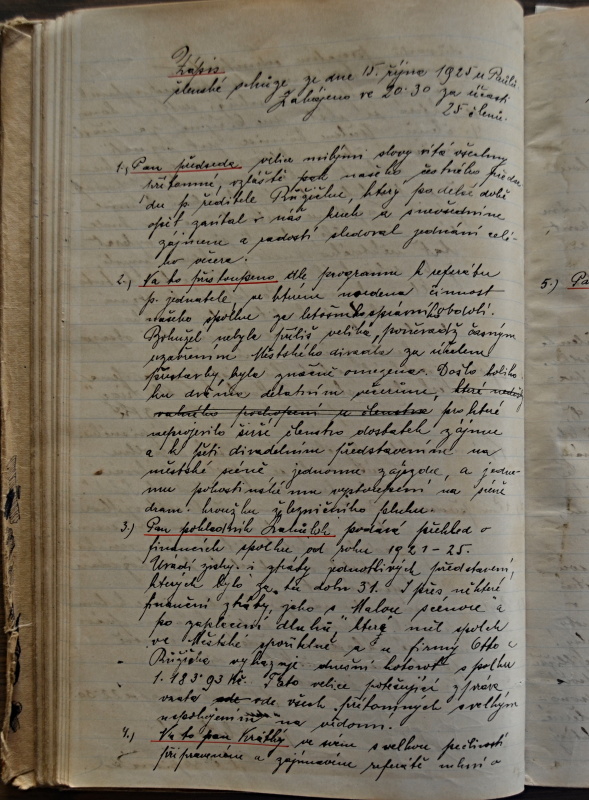 Zápis
členské schůze ze dne 15. října 1925 u
Zahájeno ve 20:30 za účasti
25 členů.
1.) Pan předseda velice milými slovy vítá všechny
přítomné, zvláště pak našeho čestného předse-
du p. ředitele Růžičku, který po delší době
opět zavítal v náš kruh a s nevšedním
zájmem a radostí sledoval jednání celé-
ho večera.
2.) Na to přistoupeno dle programu k referátu
p. jednatele, ve kterém uvedena činnost
našeho spolku za letošní správní období.
Bohužel nebyla příliš veliká, poněvadž časným
uzavřením Městského divadla za účelem
přestavby byla značně omezena. Došlo toliko
ku dvěma debatním večerům, které nedošly
pochopení u členstva pro které
neprojevilo širší členstvo dostatek zájmu
a k pěti divadelním představením na
městské scéně jednomu zájezdu, a jedno-
mu pohostinskému vystoupení na scéně
dram. kroužku železničního pluku.
3.) Pan pokladník podává přehled o
financích spolku od roku 1921-25.
Uvádí zisky i ztráty jednotlivých představení,
kterých bylo za tu dobu 31. I přes některé
finanční ztráty, jako s Malou scénou a
po zaplacení dluhů, které měl spolek
ve Městské spořitelně a u firmy Otto a
Růžička vykazuje dnešní hotovost spolku
1.483·93 Kč. Tato velice potěšující zpráva
vzata ode ode všech přítomných s velkým
uspokojením na vědomí.
4.) Na to pan Krátký ve svém s velkou pečlivostí
připraveném a zájimavém referátě mluví o
5.) Pa